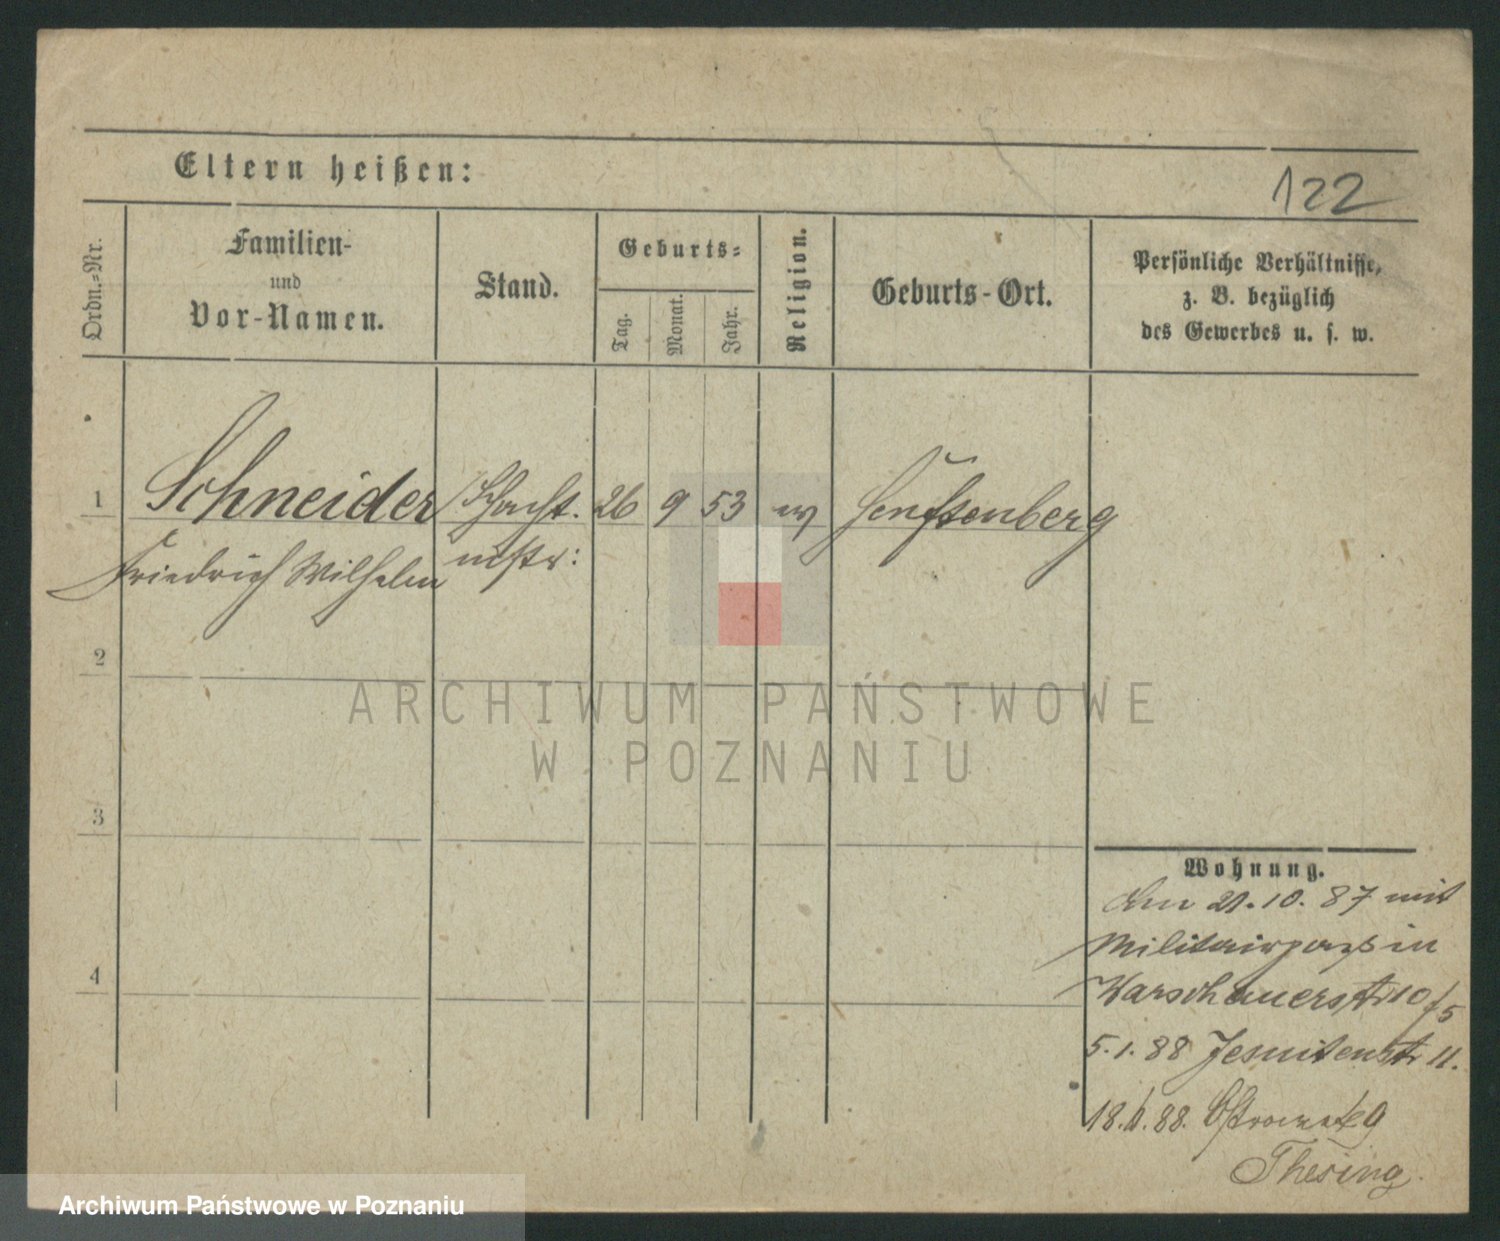 Eltern heißen:
122
Ordn.-Nr.
Familien-
und
Vor-Namen.
Stand.
Geburts-
Tag.
Monat.
Jahr.
Religion.
Geburts-Ort.
Persönliche Verhältnisse,
z. B. bezüglich
des Gewerbes u. s. w.
1
Schneider
Schacht.
26
9
53
ev
Senftenberg
Friedrich Wilhelm
mstr:
2
ARCHIWUM PAŃSTWOWE
W POZNANIU
3
4
Wohnung.
den 21.10.87 mit
Militairpass in
Warschauerstr 10/5
5.1.88 Jesuitenstr 11.
18.4.88. 9
Thesing.
Archiwum Państwowe w Poznaniu